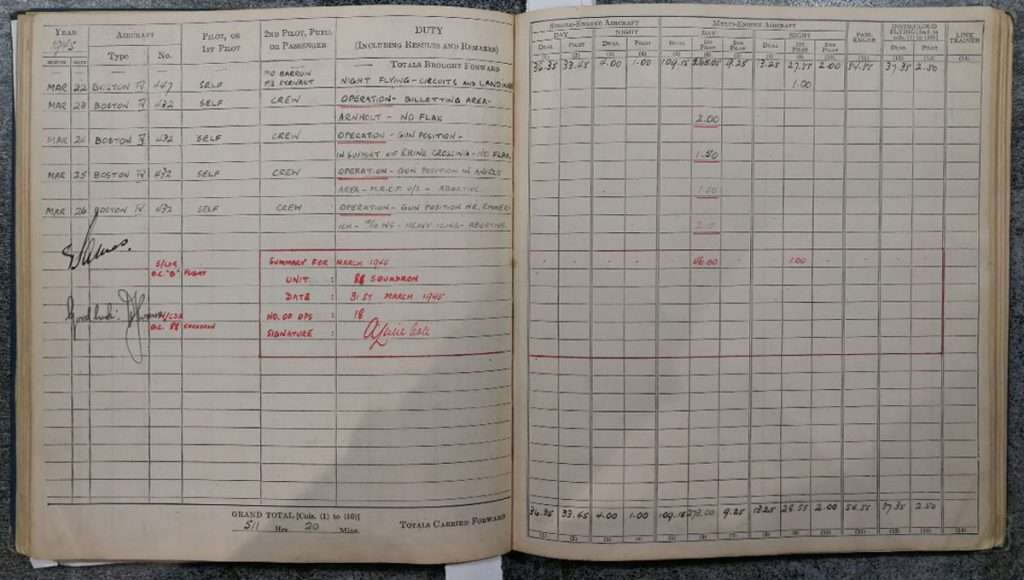 YEAR
1945
AIRCRAFT
PILOT, OR
1ST PILOT
2ND PILOT, PUPIL
OR PASSENGER
DUTY
(INCLUDING RESULTS AND REMARKS)
MONTH DATE Type No.
TOTALS BROUGHT FORWARD
MAR 22 BOSTON IV 447 SELF F/O BARRON NIGHT FLYING - CIRCUITS AND LANDINGS
MAR 23 BOSTON IV 432 SELF CREW OPERATION - BILLETTING AREA -
ARNHOLT - NO FLAK
MAR BOSTON 432 SELF CREW OPERATION - GUN POSITION -
IN SUPPORT OF RHINE CROSSING - NO FLAK
MAR 25 BOSTON IV 432 SELF CREW OPERATION - GUN POSITION IN
AREA - ABORTIVE
MAR 26 BOSTON IV 432 SELF CREW OPERATION - GUN POSITION NR.
HEAVY ICING - ABORTIVE
S/LDR
O.C. "B" FLIGHT
Good luck.
W/CDR
O.C. 88 SQUADRON
SUMMARY FOR MARCH 1945
UNIT : 88 SQUADRON
DATE : 31ST MARCH 1945
NO. OF OPS : 18
SIGNATURE :
GRAND TOTAL [Cols. (1) to (10)]
511 Hrs. 20 Mins.
TOTALS CARRIED FORWARD
SINGLE-ENGINE AIRCRAFT MULTI-ENGINE AIRCRAFT
DAY NIGHT DAY NIGHT
PASS-
ENGER
INSTR/CLOUD
FLYING [Incl. in
cols. (1) to (10)]
LINK
TRAINER
DUAL PILOT DUAL PILOT DUAL 1ST PILOT 2ND PILOT DUAL 1ST PILOT 2ND PILOT DUAL PILOT
(1) (2) (3) (4) (5) (6) (7) (8) (9) (10) (11) (12) (13) (14)
36.35 33.45 4.00 1.00 109.15 9.25 13.25 27.55 2.00 37.35 2.50
1.00
2.00
1.50
1.00
46.00 1.00
36.35 33.45 4.00 1.00 109.15 9.25 13.25 28.55 2.00 37.35 2.50
(1) (2) (3) (4) (5) (6) (7) (8) (9) (10) (11) (12) (13) (14)